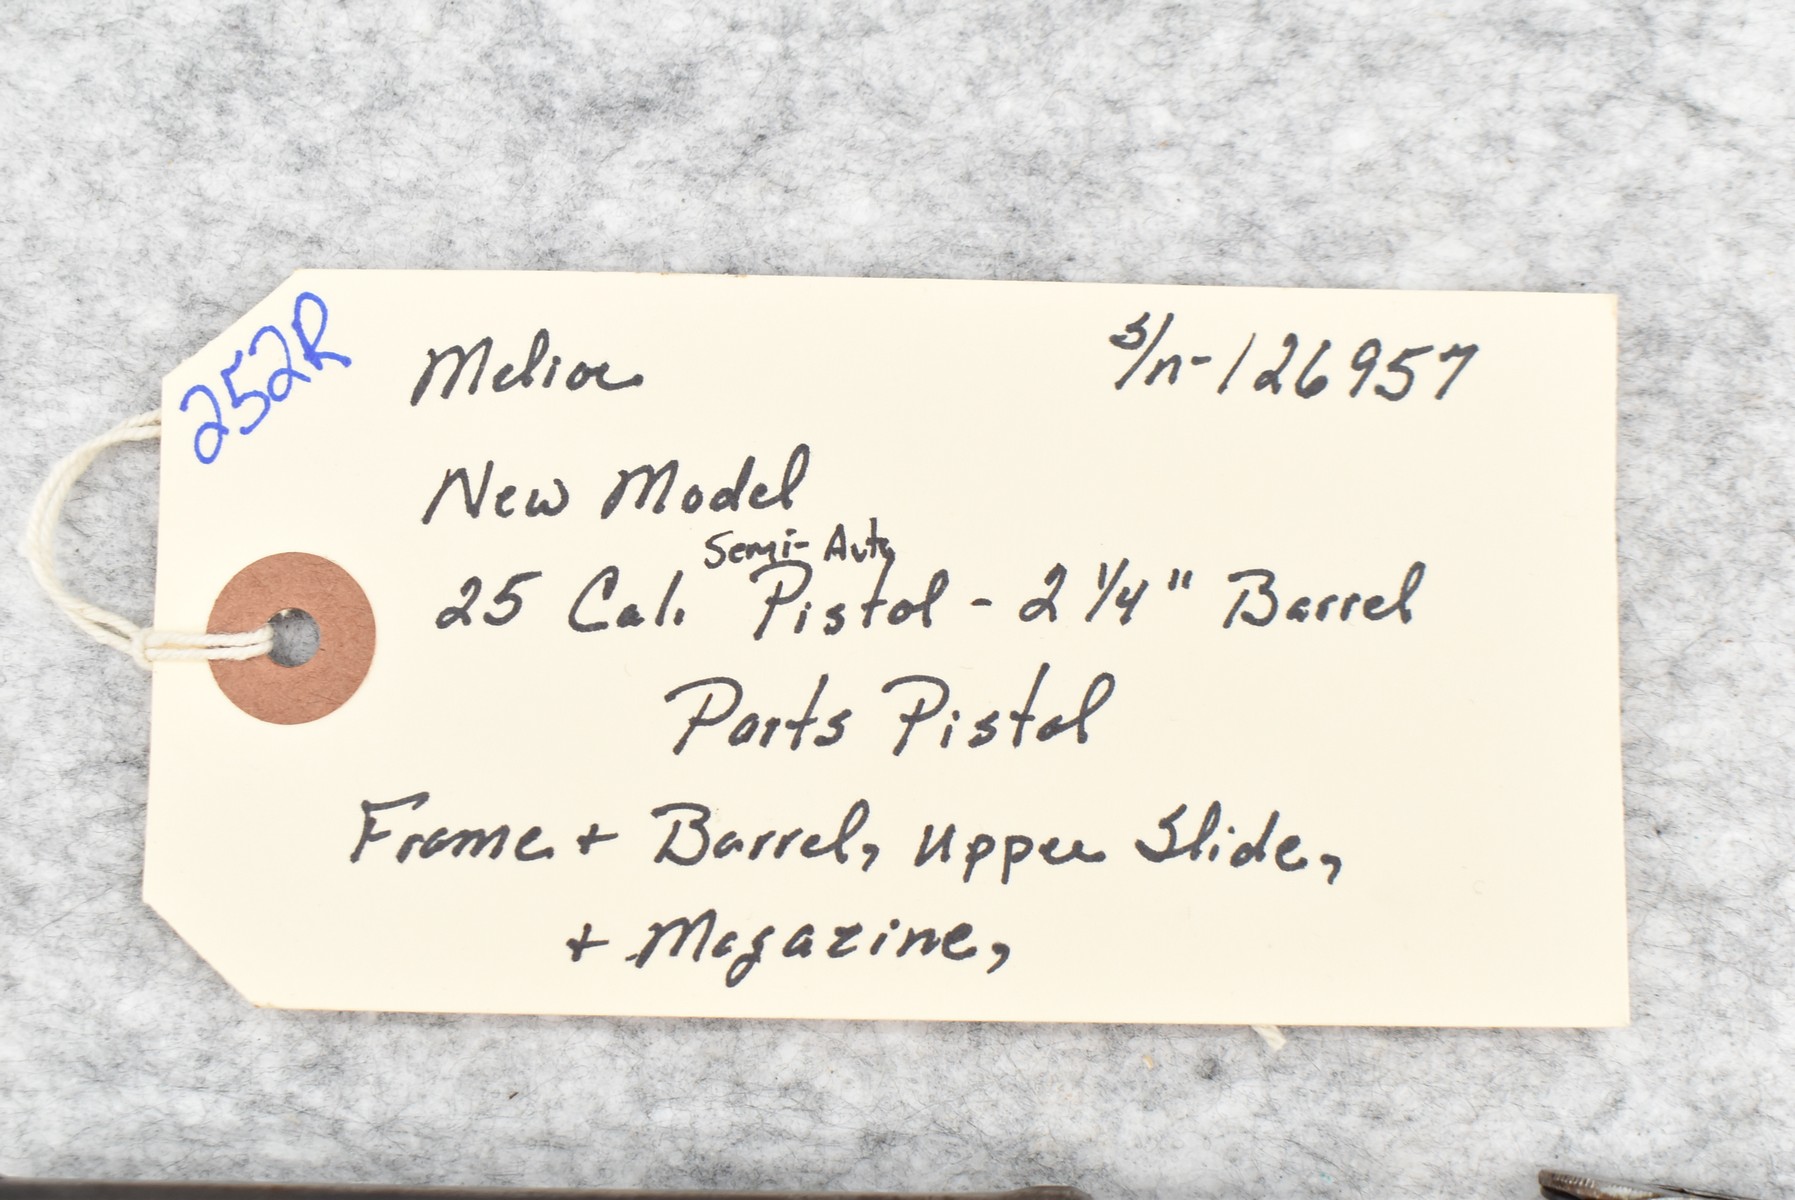 252R
Melior
S/n-126957
New Model
Semi-Auto
25 Cal. Pistol - 2 1/4" Barrel
Parts Pistol
Frame + Barrel, Upper Slide,
+ Magazine,